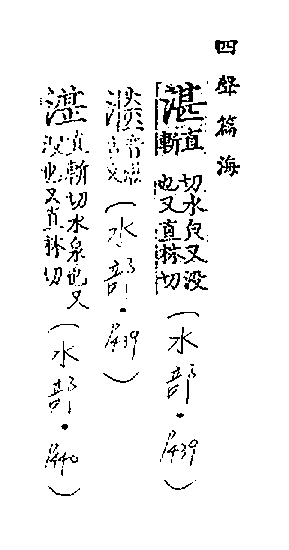 四聲篇海
湛直斬切水皃又没也又直林切（水部·P439）
古文（水部·P439）
直斬切水泉也又没也又直林切（水部·P440）